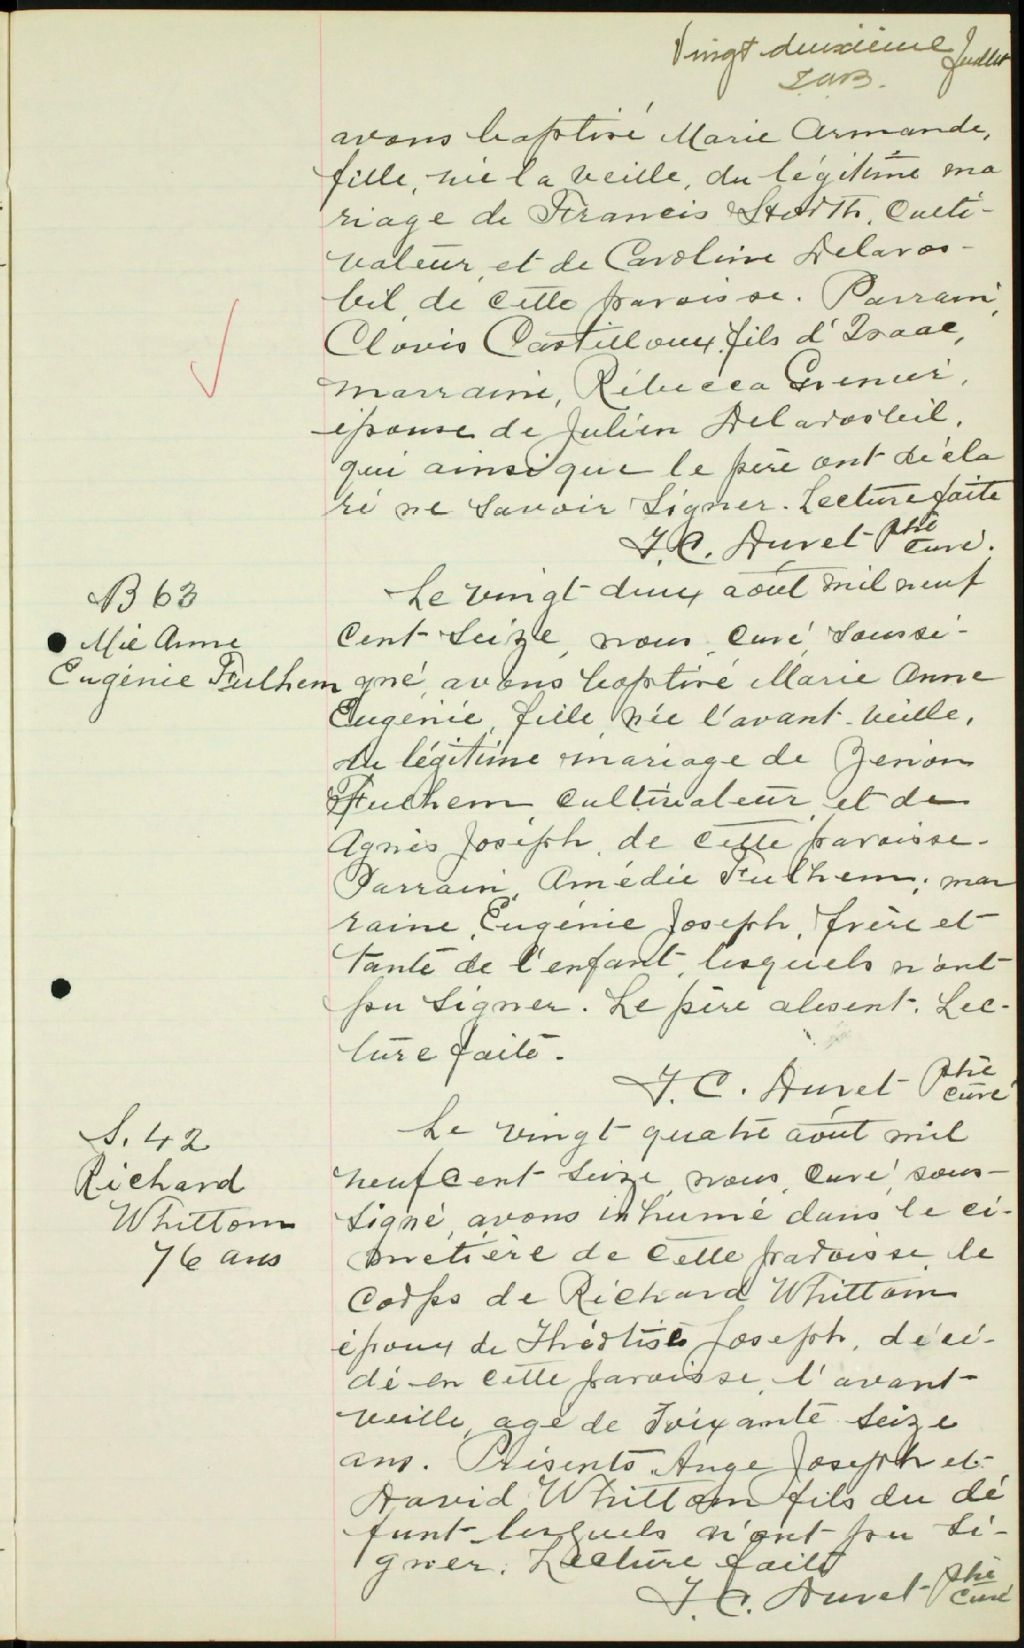 Vingt deuxième Juillet
avons baptisé Marie Armande,
fille, née la veille, du légitime ma
riage de Francis Storth, Culti-
vateur, et de Caroline Delaros-
bil de cette paroisse. Parrain,
Clovis Castilloux, fils d'Isaac,
marraine, Rébecca Grenier,
épouse de Julien Delarosbeil,
qui ainsi que le père ont décla
ré ne savoir signer. Lecture faite
J. C. Duret Ptre
curé.
B 63
Mie Anne
Eugénie Fulhem
Le vingt deux août mil neuf
cent seize, nous, curé, soussi-
gné, avons baptisé Marie Anne
Eugénie, fille, née l'avant-veille,
du légitime mariage de Zenon
Fulhem cultivateur, et de
Agnès Joseph, de cette paroisse.
Parrain, Amédée Fulhem; mar
raine, Eugénie Joseph, frère et
tante de l'enfant, lesquels n'ont
pu signer. Le père absent. Lec-
ture faite.
J. C. Duret Ptre
curé
S. 42
Richard
Whittom
76 ans
Le vingt quatre août mil
neuf cent seize, nous, curé, sous-
signé, avons inhumé dans le ci-
metière de cette paroisse, le
corps de Richard Whittom
époux de Théotiste Joseph, décé-
dé en cette paroisse, l'avant-
veille, agé de soixante seize
ans. Présents Ange Joseph et
David Whittom fils du dé
funt lesquels n'ont pu si-
gner. Lecture faite
J. C. Duret Ptre
curé